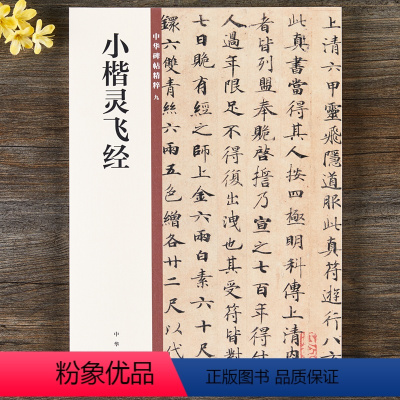 小楷灵飞经
中华碑帖精粹 九
中华
上清六甲靈飛隱道服此真符遊行八
此真書當得其人按四極明科傳上清內
者皆列盟奉賝啓誓乃宣之七百年得付
人過年限足不得復出洩也其受符皆對
七日賝有經之師上金六兩白素六十尺
鐶六雙青絲六兩五色繒各廿二尺以代
粉象优品